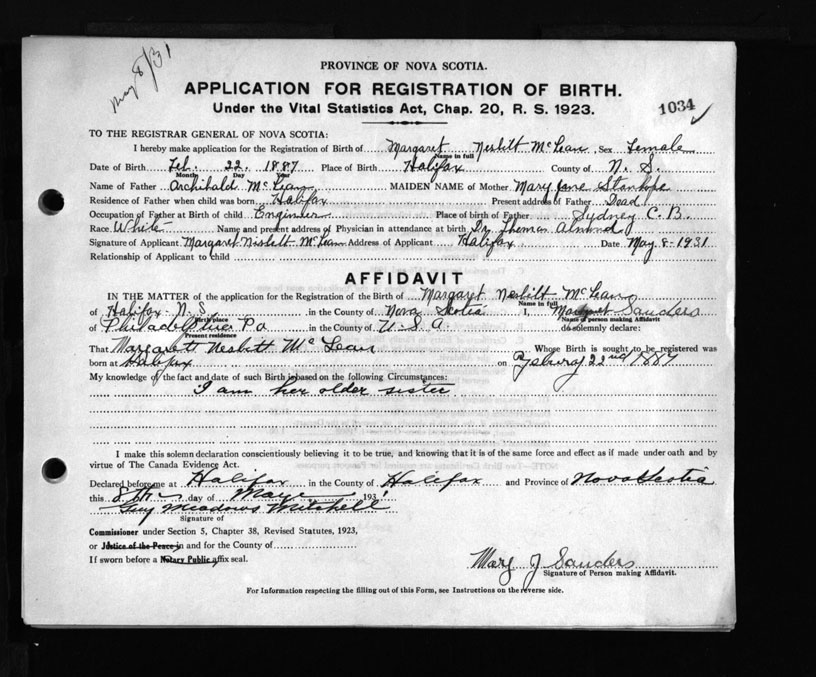 May 8/31
PROVINCE OF NOVA SCOTIA.
APPLICATION FOR REGISTRATION OF BIRTH.
Under the Vital Statistics Act, Chap. 20, R. S. 1923.
1034
TO THE REGISTRAR GENERAL OF NOVA SCOTIA:
I hereby make application for the Registration of Birth of Margaret Nesbitt McLean Sex Female
Name in full
Date of Birth Feb. 22. 1887 Place of Birth Halifax County of N. S.
Month Day Year
Name of Father Archibald McLean MAIDEN NAME of Mother Mary Jane Stanhope
Residence of Father when child was born Halifax Present address of Father Dead
Occupation of Father at Birth of child Enginner Place of birth of Father Sydney C. B.
Race White Name and present address of Physician in attendance at birth Dr. Almond
Signature of Applicant Margaret Nisbett McLean Address of Applicant Halifax Date May 8-1931
Relationship of Applicant to Child
AFFIDAVIT
IN THE MATTER of the application for the Registration of the Birth of Margaret Nesbitt McLean
Name in full
of Halifax N. S. in the County of Nova Scotia I, Sanders
Birth place Name of person making Affidavit
of Pa in the County of U. S. A. do solemnly declare:
Present residence
That Margarett Nesbitt McLean Whose Birth is sought to be registered was
born at Halifax on 22nd 1887
My knowledge of the fact and date of such Birth is based on the following Circumstances:
I am her older sister
I make this solemn declaration conscientiously believing it to be true, and knowing that it is of the same force and effect as if made under oath and by
virtue of The Canada Evidence Act.
Declared before me at Halifax in the County of Halifax and Province of Nova Scotia
this 8th day of Maye 1931
Guy Meadows Mitchell
Signature of
Commissioner under Section 5, Chapter 38, Revised Statutes, 1923,
or Justice of the Peace in and for the County of
If sworn before a Notary Public affix seal.
Mary J Sanders
Signature of Person making Affidavit.
For Information respecting the filling out of this Form, see Instructions on the reverse side.